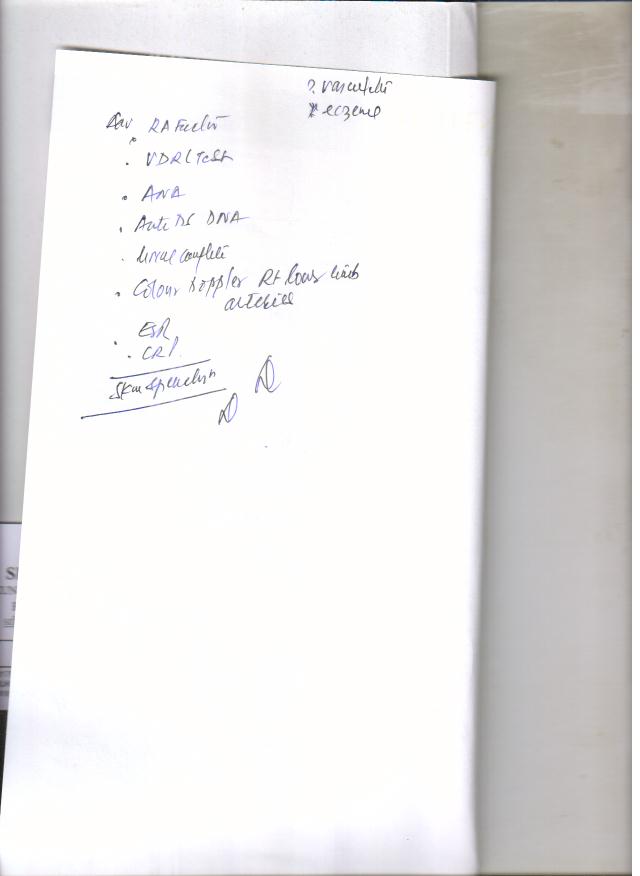 ? vasculitis
* eczema
Adv RA Factor
. VDRL Test
. ANA
. Anti Ds DNA
. Urine complete
. Colour Doppler Rt lower limb
arteries
. ESR
. CRP.
Skin specialist